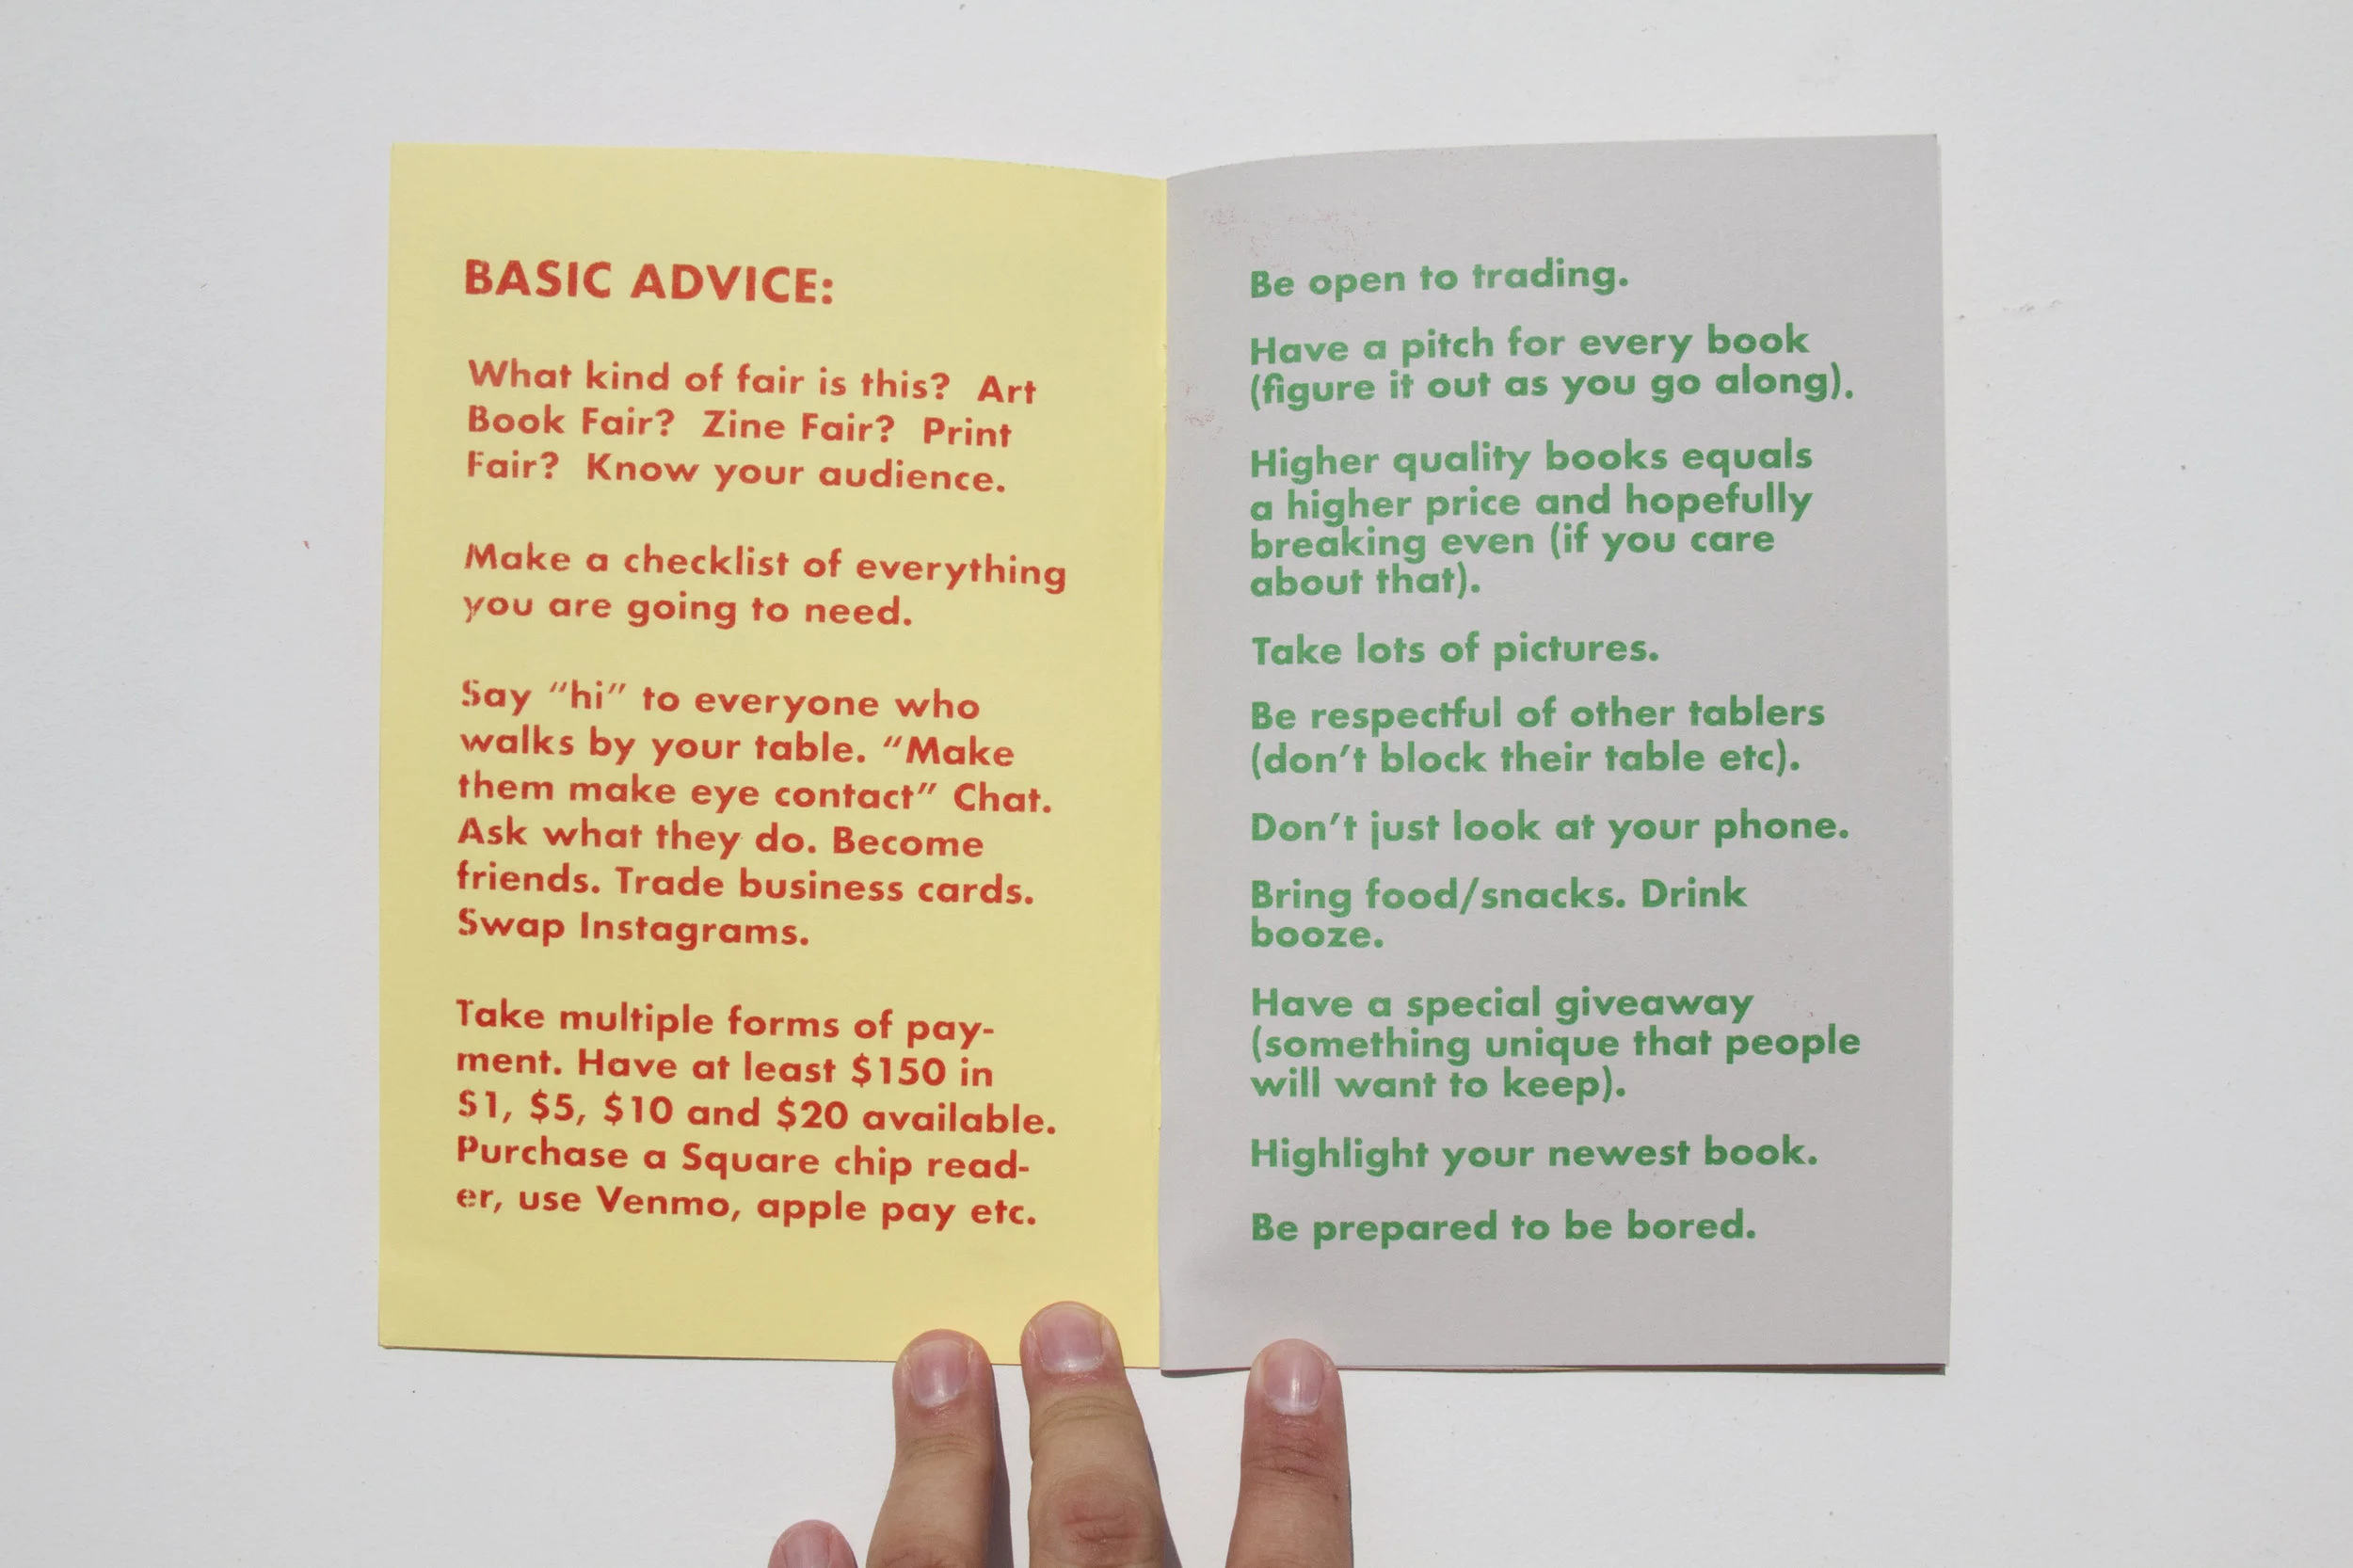 BASIC ADVICE:
What kind of fair is this?  Art
Book Fair?  Zine Fair?  Print
Fair?  Know your audience.
Make a checklist of everything
you are going to need.
Say “hi” to everyone who
walks by your table. “Make
them make eye contact” Chat.
Ask what they do. Become
friends. Trade business cards.
Swap Instagrams.
Take multiple forms of pay-
ment. Have at least $150 in
$1, $5, $10 and $20 available.
Purchase a Square chip read-
er, use Venmo, apple pay etc.
Be open to trading.
Have a pitch for every book
(figure it out as you go along).
Higher quality books equals
a higher price and hopefully
breaking even (if you care
about that).
Take lots of pictures.
Be respectful of other tablers
(don’t block their table etc).
Don’t just look at your phone.
Bring food/snacks. Drink
booze.
Have a special giveaway
(something unique that people
will want to keep).
Highlight your newest book.
Be prepared to be bored.